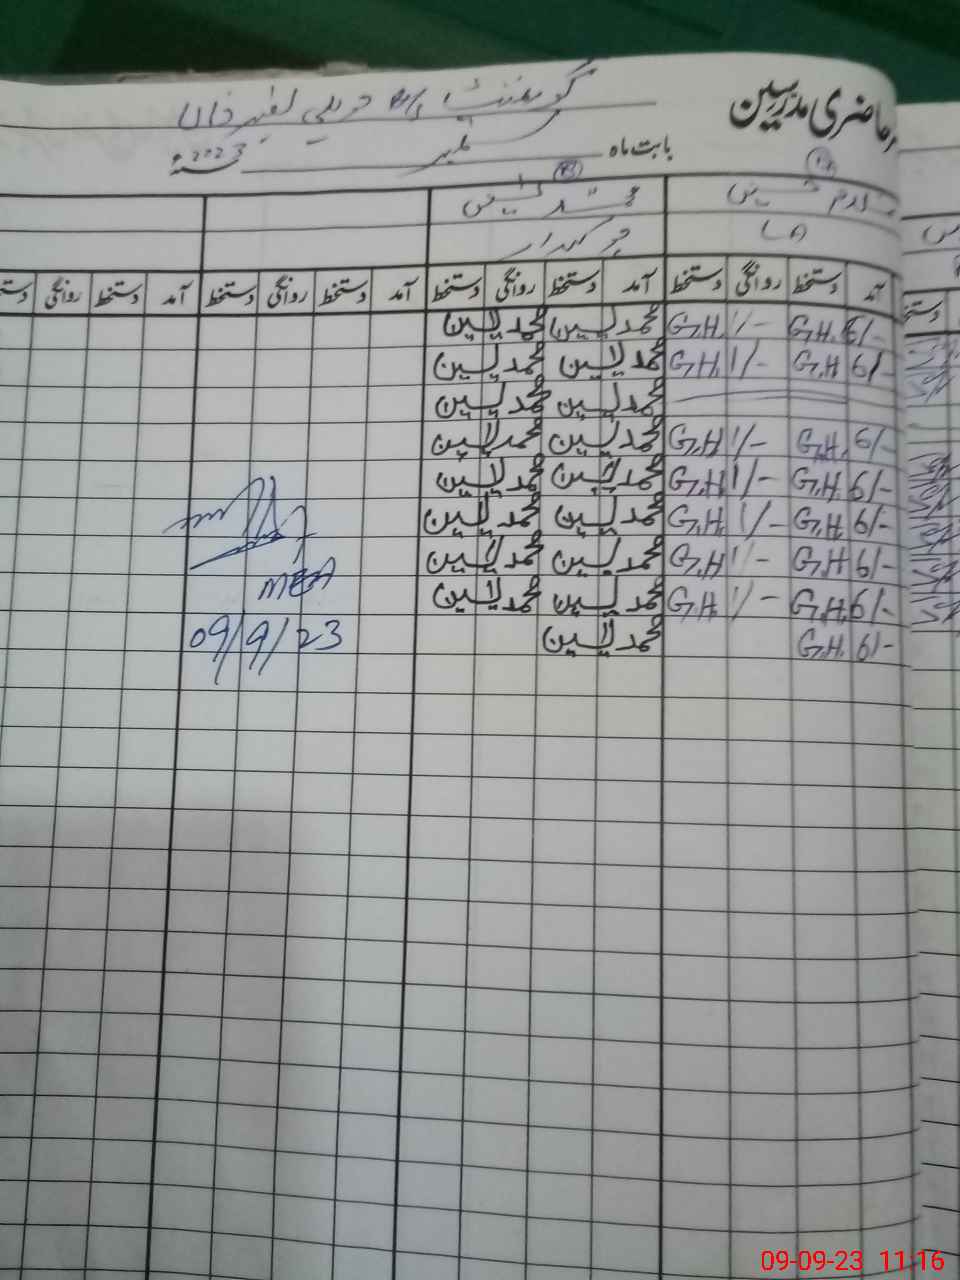 حاضری مدرسین
گورنمنٹ
بابت ماہ ستمبر 2023ء
غلام حسین محمد یٰسین
LA چوکیدار
آمد دستخط روانگی دستخط آمد دستخط روانگی دستخط آمد دستخط روانگی دستخط آمد دستخط روانگی دستخط
6/- G.H. 1/- G.H. محمد یٰسین محمد یٰسین
6/- G.H 1/- G.H. محمد یٰسین محمد یٰسین
محمد یٰسین محمد یٰسین
6/- G.H. 1/- G.H محمد یٰسین محمد یٰسین
6/- G.H. 1/- G.H. محمد یٰسین محمد یٰسین
6/- G.H. 1/- G.H. محمد یٰسین محمد یٰسین
6/- G.H. 1/- G.H محمد یٰسین محمد یٰسین
MEA
6/- G.H. 1/- G.H. محمد یٰسین محمد یٰسین
6/- G.H. محمد یٰسین
09/9/23
09-09-23 11:16